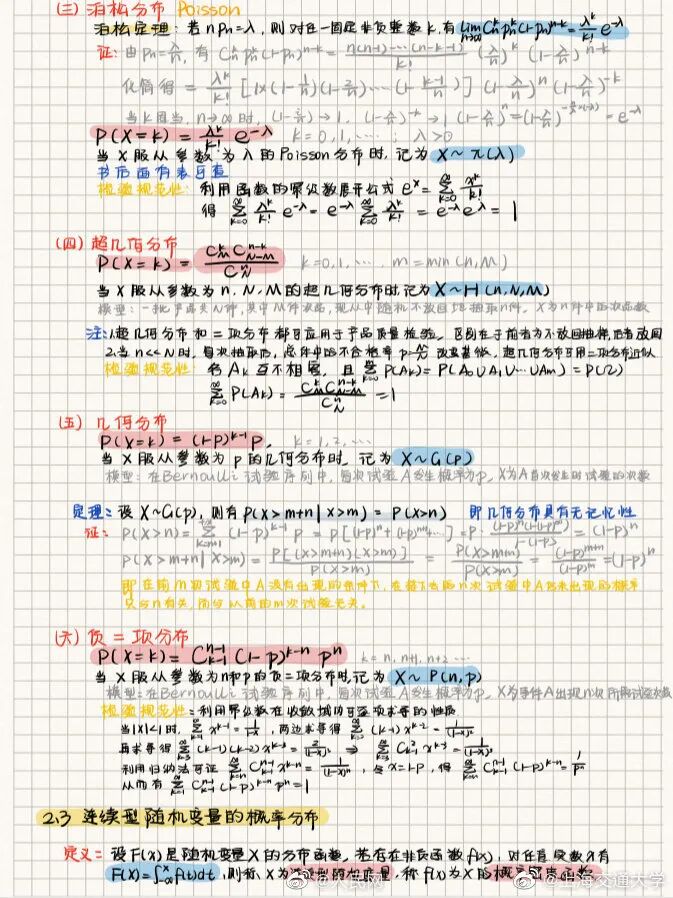 (三) 泊松分布 Poisson
泊松定理: 若npn=λ, 则对任一固定非负整数k, 有 lim n→∞ C_n^k p_n^k (1-p_n)^{n-k} = λ^k/k! e^{-λ}
证: 由Pn=λ/n, 有 C_n^k p_n^k (1-p_n)^{n-k} = n(n-1)…(n-k+1)/k! (λ/n)^k (1-λ/n)^{n-k}
化简得 = λ^k/k! [1×(1-1/n)(1-2/n)…(1-(k-1)/n)] (1-λ/n)^n (1-λ/n)^{-k}
当k固定, n→∞时,
P(X=k) = λ^k/k! e^{-λ} k=0,1,…; λ>0
当X服从参数为λ的Poisson分布时, 记为 X~π(λ)
书后面有表可查
检验规范性: 利用函数的幂级数展开公式 e^x = Σ_{k=0}^∞ x^k/k!
得 Σ_{k=0}^∞ λ^k/k! e^{-λ} = e^{-λ} Σ_{k=0}^∞ λ^k/k! = e^{-λ}e^{λ} = 1
(四) 超几何分布
P(X=k) = C_M^k C_{N-M}^{n-k} / C_N^n k=0,1,… m=min(n,M)
当X服从参数为n,N,M的超几何分布时,记为 X~H(n,N,M)
模型: 一批产品共N件,其中M件次品,现从中随机不放回地抽取n件, X为n件中的次品数
注: 1.超几何分布和二项分布都可应用于产品质量检验, 区别在于前者为不放回抽样,后者放回
2.当n<<N时, 每次抽取后, 总体中的不合格率 p=M/N 改变甚微, 超几何分布可用二项分布近似
检验规范性: 各Ak互不相容, 且 ΣP(Ak) = P(A0∪A1∪…∪Am) = P(Ω)
Σ P(Ak) = C_M^k C_{N-M}^{n-k} / C_N^n = 1
(五) 几何分布
P(X=k) = (1-P)^{k-1} P, k=1,2,…
当X服从参数为p的几何分布时, 记为 X~G(p)
模型: 在Bernoulli试验序列中, 每次试验A发生概率为p, X为A首次发生时试验的次数
定理: 设X~G(p), 则有P(X>m+n|X>m) = P(X>n) 即几何分布具有无记忆性
证: P(X>n) = Σ_{k=n+1}^{+∞} (1-p)^{k-1} p = p[(1-p)^n+(1-p)^{n+1}+…] = (1-p)^n
P(X>m+n|X>m) = P[(X>m+n)(X>m)]/P(X>m) = P(X>m+n)/P(X>m) = (1-p)^{m+n}/(1-p)^m = (1-p)^n
即在前m次试验中A没有出现的条件下, 在接下去的n次试验中A仍未出现的概率
只与n有关, 而与以前的m次试验无关。
(六) 负二项分布
P(X=k) = C_{k-1}^{n-1} (1-p)^{k-n} p^n k=n,n+1,n+2…
当X服从参数为n和p的负二项分布时,记为 X~P(n,p)
模型: 在Bernoulli试验序列中, 每次试验A发生概率为p, X为事件A出现n次所需试验次数
检验规范性: 利用幂级数在收敛域内可逐项求导的性质
当|X|<1时, Σ x^{k-1} = 1/(1-x), 两边求导得 Σ (k-1)x^{k-2} = 1/(1-x)^2
再求导得 Σ (k-1)(k-2)x^{k-3} = 2/(1-x)^3 ⇒ Σ C_{k-1}^2 x^{k-3} = 1/(1-x)^3
利用归纳法可证 Σ C_{k-1}^{n-1} x^{k-n} = 1/(1-x)^n, 令x=1-p, 得 Σ C_{k-1}^{n-1} (1-p)^{k-n} = 1/p^n
从而有 Σ C_{k-1}^{n-1} (1-p)^{k-n} p^n = 1
2.3 连续型随机变量的概率分布
定义: 设F(x)是随机变量X的分布函数, 若存在非负函数f(x), 对任意实数x有
F(x)=∫_{-∞}^x f(t)dt, 则称X为连续型随机变量, 称f(x)为X的概率密度函数
@人民网 @上海交通大学